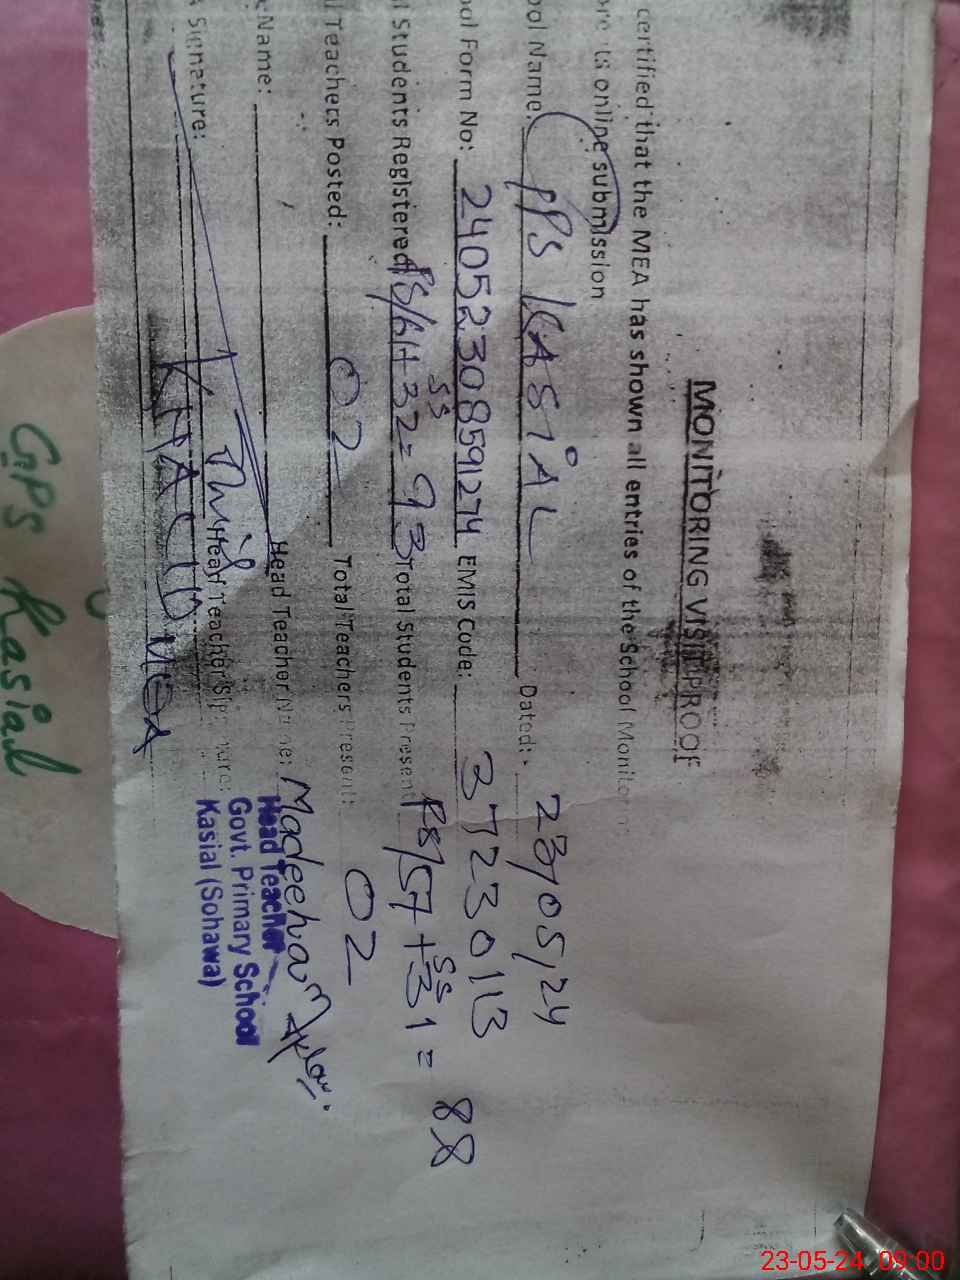 MONITORING VISIT PROOF
certified that the MEA has shown all entries of the School Monitor
online submission
ool Name: GPS KASIAL Dated: 23/05/24
ool Form No: 24052308591274 EMIS Code: 37230113
l Students Registered PS/61+32=93 Total Students Present PS/57+31=88
SS SS
l Teachers Posted: 02 Total Teachers Present: 02
Name: Head Teacher Name: Madeeha
Signature: Head Teacher Signature:
KHALID MEA
Head Teacher
Govt. Primary School
Kasial (Sohawa)
GPS Kasial
23-05-24 09:00